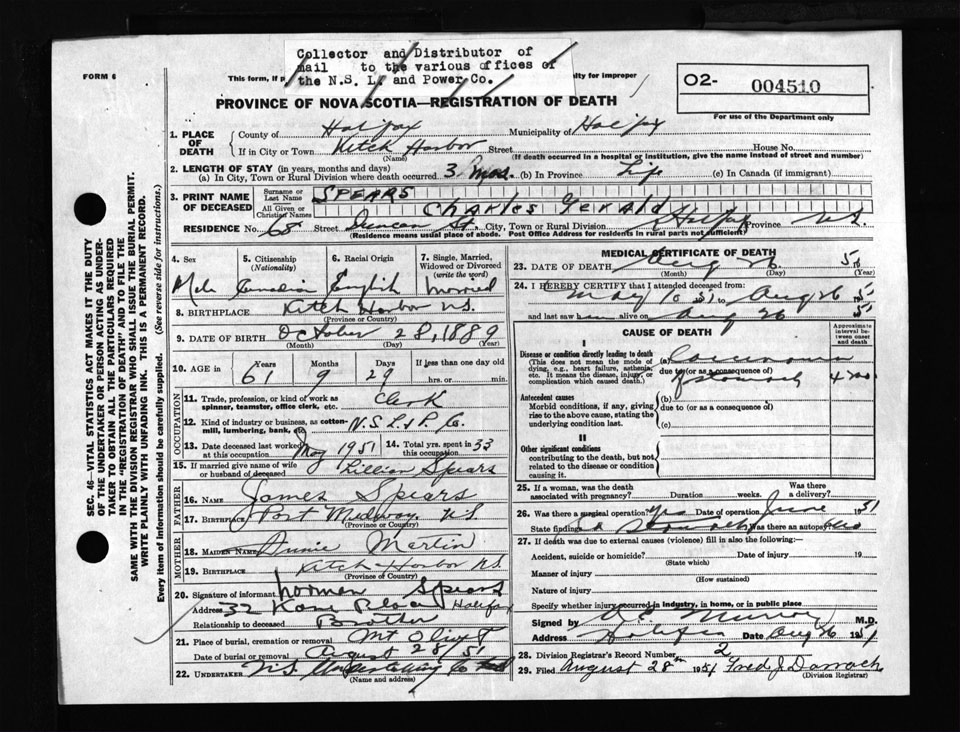 Collector and Distributor of
mail to the various offices of
the N.S. L. and Power Co.
FORM 6
This form, if p
alty for improper
O2- 004510
For use of the Department only
PROVINCE OF NOVA SCOTIA—REGISTRATION OF DEATH
1. PLACE OF DEATH County of Halifax Municipality of Halifax
If in City or Town Ketch Harbor Street House No.
(Name) (If death occurred in a hospital or institution, give the name instead of street and number)
2. LENGTH OF STAY (in years, months and days)
(a) In City, Town or Rural Division where death occurred 3 mos. (b) In Province Life (c) In Canada (if immigrant)
3. PRINT NAME OF DECEASED Surname or Last Name SPEARS
All Given or Christian Names Charles Gerald
RESIDENCE No. 68 Street St. City, Town or Rural Division Halifax Province N.S.
(Residence means usual place of abode. Post Office Address for residents in rural parts not sufficient)
4. Sex 5. Citizenship (Nationality) 6. Racial Origin 7. Single, Married, Widowed or Divorced (write the word)
Male Canadian English married
8. BIRTHPLACE Ketch Harbor N.S.
(Province or Country)
9. DATE OF BIRTH October 28, 1889
(Month) (Day) (Year)
10. AGE in Years Months Days If less than one day old
61 9 29 hrs. or min.
OCCUPATION
11. Trade, profession, or kind of work as spinner, teamster, office clerk, etc. Clerk
12. Kind of industry or business, as cotton-mill, lumbering, bank, etc. N.S.L. & P. Co.
13. Date deceased last worked at this occupation May 1951 14. Total yrs. spent in this occupation 33
15. If married give name of wife or husband of deceased Lillian Spears
FATHER
16. Name James Spears
17. Birthplace Port Medway N.S.
(Province or Country)
MOTHER
18. MAIDEN NAME Annie Martin
19. BIRTHPLACE Ketch Harbor N.S.
(Province of Country)
20. Signature of informant Norman Spears
Address 32 Kane Place Halifax
Relationship to deceased Brother
21. Place of burial, cremation or removal Mt Olivet
Date of burial or removal August 28/51
22. UNDERTAKER N.S. Undertaking Co
(Name and address)
MEDICAL CERTIFICATE OF DEATH
23. DATE OF DEATH Aug 26 51
(Month) (Day) (Year)
24. I HEREBY CERTIFY that I attended deceased from:
May 10 51 to Aug 26 51
and last saw alive on Aug 26 51
CAUSE OF DEATH
Approximate interval between onset and death
I
Disease or condition directly leading to death (a) Carcinoma
(This does not mean the mode of dying, e.g., heart failure, asthenia, etc. It means the disease, injury, or complication which caused death.)
due to (or as a consequence of)
of stomach 4 mo.
Antecedent causes (b)
Morbid conditions, if any, giving rise to the above cause, stating the underlying condition last.
due to (or as a consequence of)
(c)
II
Other significant conditions
contributing to the death, but not related to the disease or condition causing it.
25. If a woman, was the death associated with pregnancy? Duration weeks. Was there a delivery?
26. Was there a surgical operation? Yes Date of operation June 1951
State findings Ca Stomach Was there an autopsy? No
27. If death was due to external causes (violence) fill in also the following:—
Accident, suicide or homicide? Date of injury 19
(State which)
Manner of injury
(How sustained)
Nature of injury
Specify whether injury occurred in industry, in home, or in public place
Signed by Murray M.D.
Address Halifax Date Aug 26 1951
28. Division Registrar's Record Number 2
29. Filed August 28th 1951 Fred J. Darrach
(Division Registrar)
SEC. 46—VITAL STATISTICS ACT MAKES IT THE DUTY
OF THE UNDERTAKER OR PERSON ACTING AS UNDER-
TAKER TO OBTAIN ALL THE PARTICULARS REQUIRED
IN THE "REGISTRATION OF DEATH" AND TO FILE THE
SAME WITH THE DIVISION REGISTRAR WHO SHALL ISSUE THE BURIAL PERMIT.
WRITE PLAINLY WITH UNFADING INK. THIS IS A PERMANENT RECORD.
Every item of information should be carefully supplied. (See reverse side for instructions.)